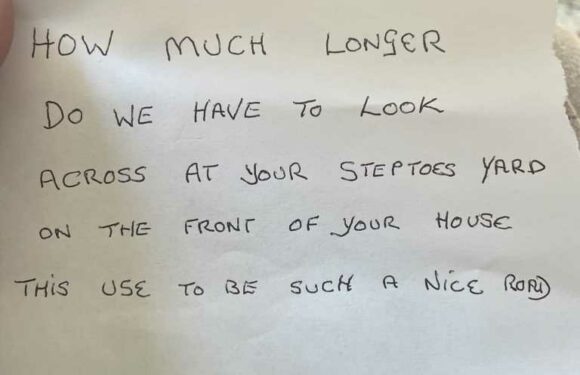 HOW MUCH LONGER
DO WE HAVE TO LOOK
ACROSS AT YOUR STEPTOES YARD
ON THE FRONT OF YOUR HOUSE
THIS USE TO BE SUCH A NICE ROAD